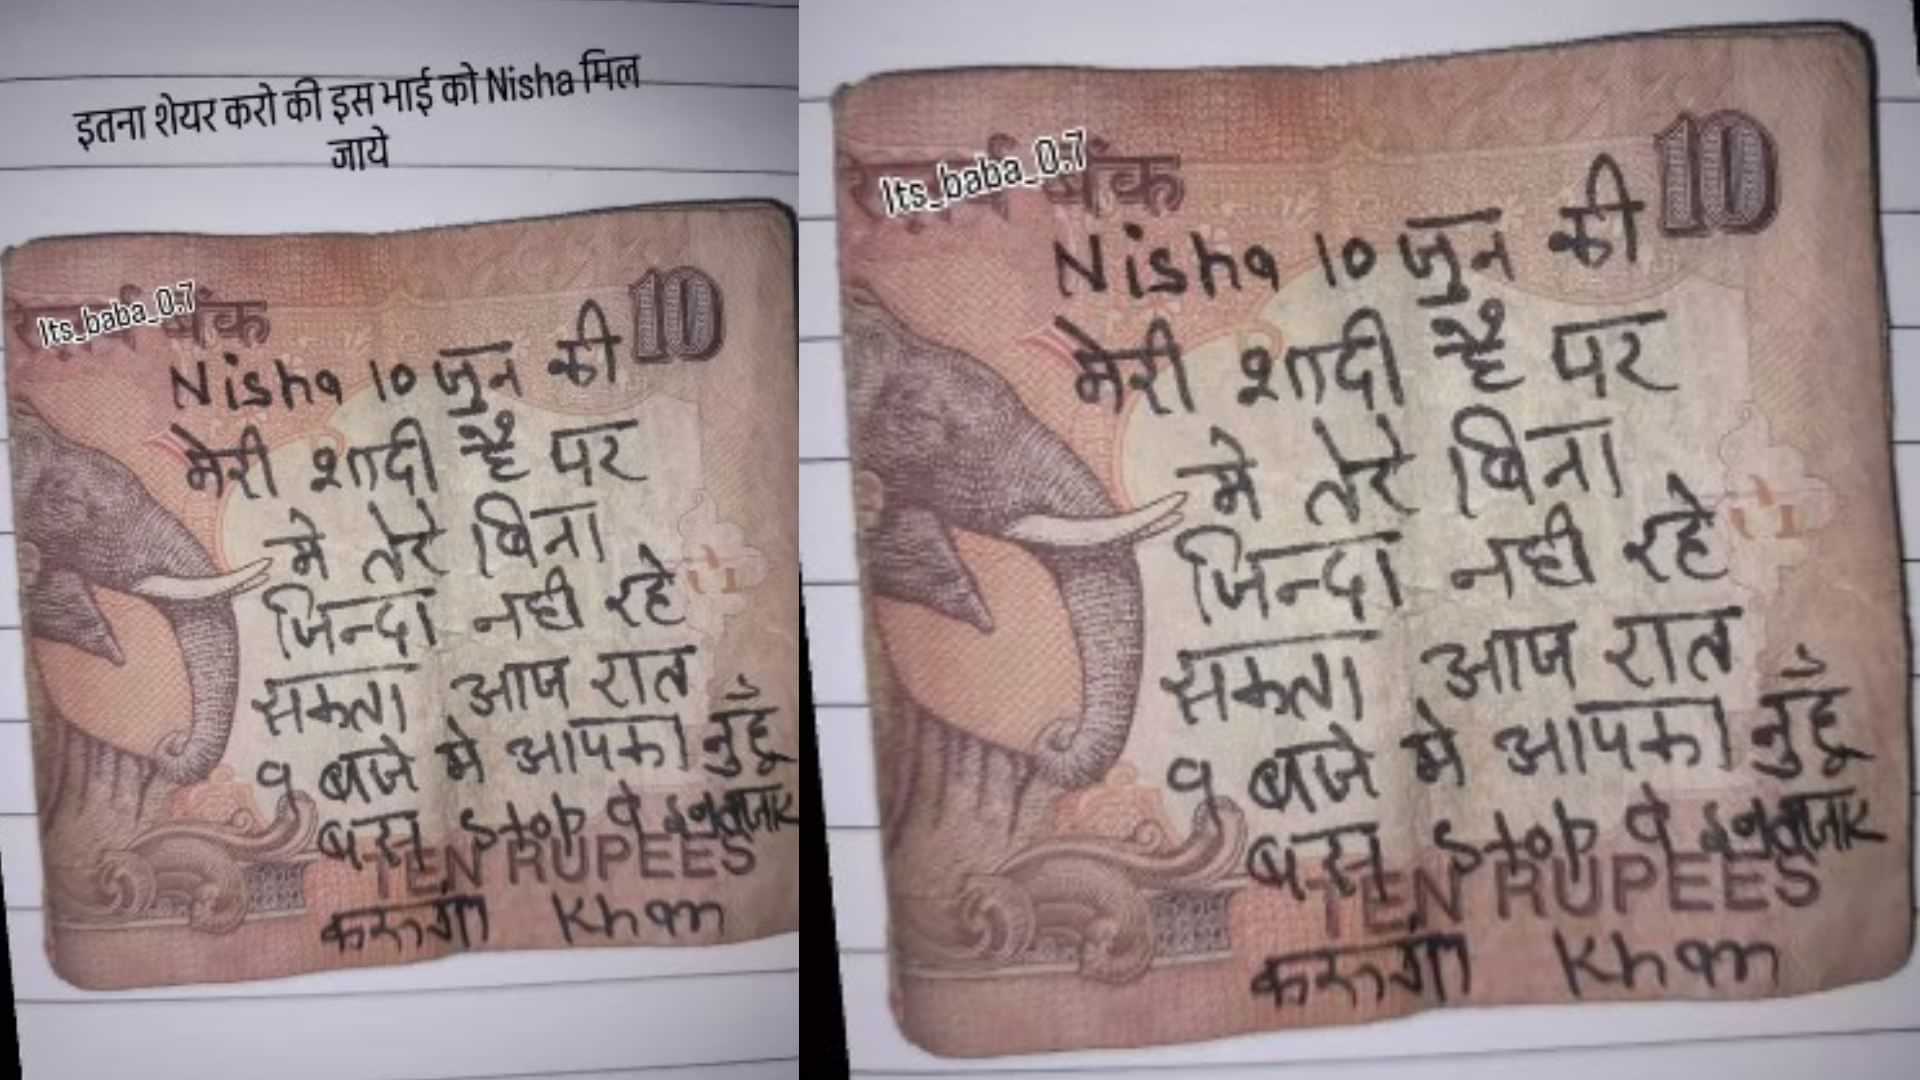 इतना शेयर करो की इस भाई को Nisha मिल
जाये
Its_baba_0.7
बैंक
10
Nisha 10 जुन की
मेरी शादी है पर
मे तेरे बिना
जिन्दा नही रहे
सकता आज रात
9 बजे मे आपका नुहूँ
बस stop पे इन्तजार
TEN RUPEES
करूंगा Khan
Its_baba_0.7
बैंक
10
Nisha 10 जुन की
मेरी शादी है पर
मे तेरे बिना
जिन्दा नही रहे
सकता आज रात
9 बजे मे आपका नुहूँ
बस stop पे इन्तजार
TEN RUPEES
करूंगा Khan